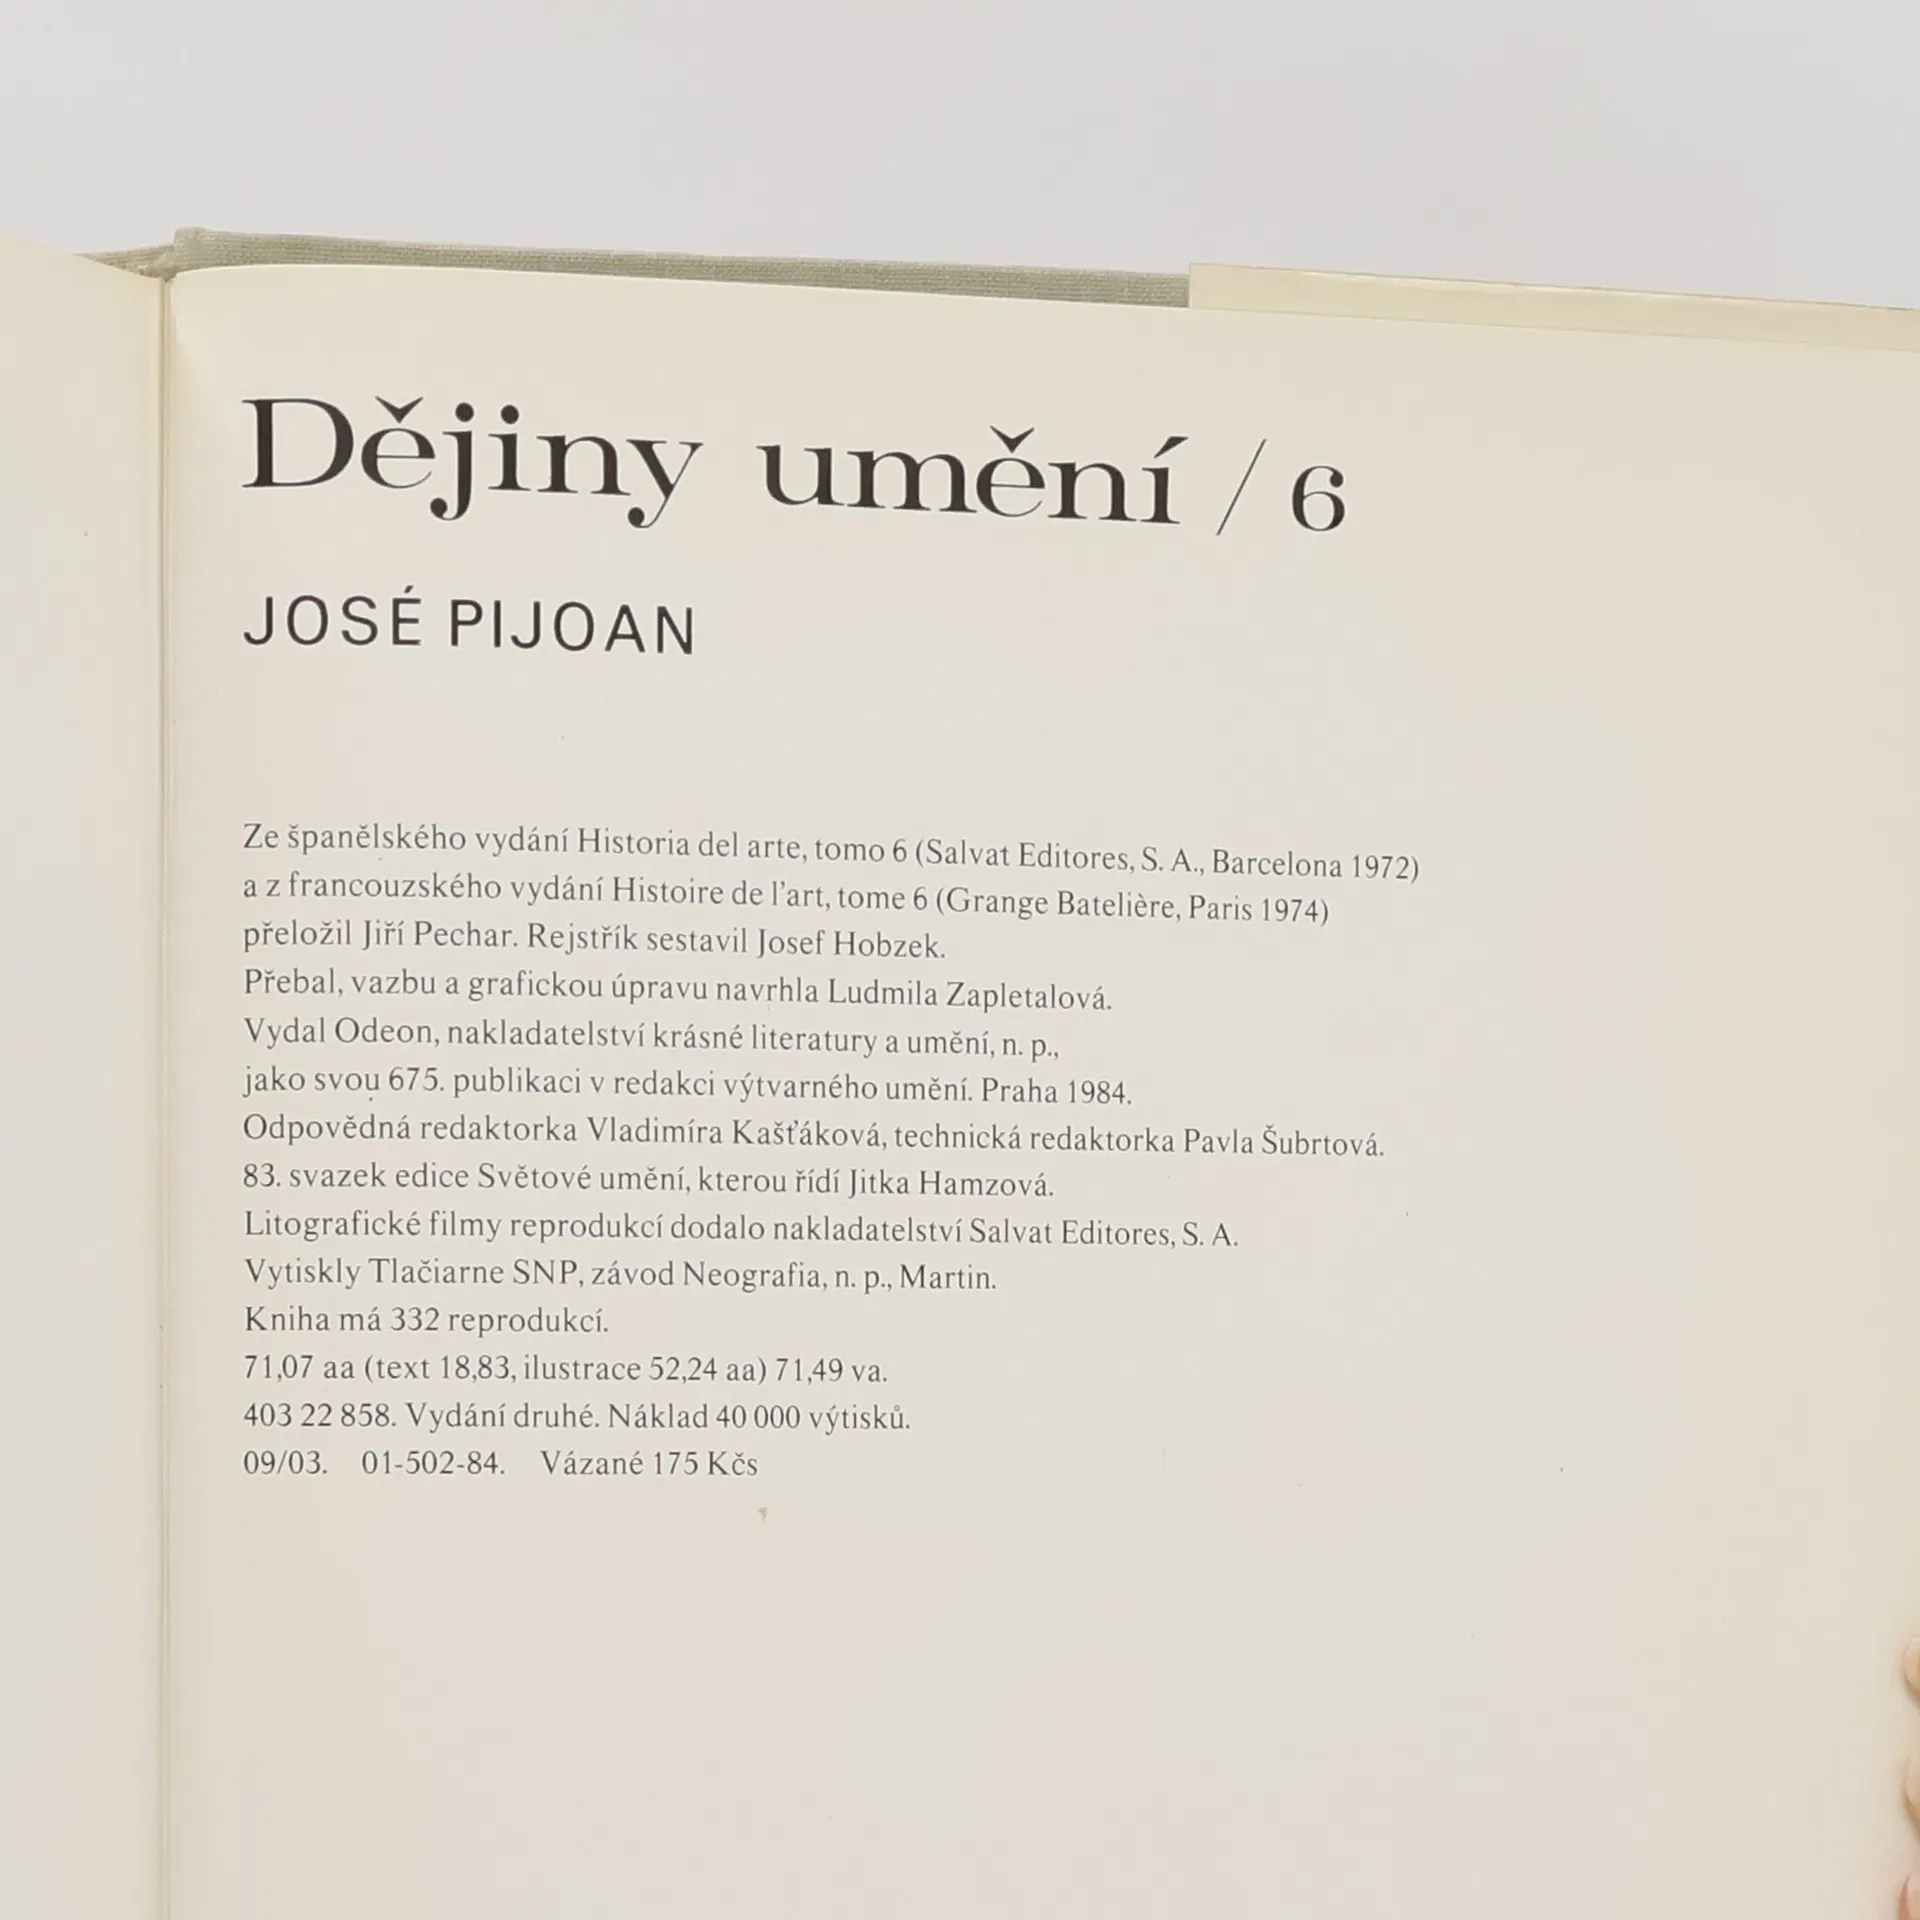 Dějiny umění / 6
JOSÉ PIJOAN
Ze španělského vydání Historia del arte, tomo 6 (Salvat Editores, S. A., Barcelona 1972)
a z francouzského vydání Histoire de l'art, tome 6 (Grange Batelière, Paris 1974)
přeložil Jiří Pechar. Rejstřík sestavil Josef Hobzek.
Přebal, vazbu a grafickou úpravu navrhla Ludmila Zapletalová.
Vydal Odeon, nakladatelství krásné literatury a umění, n. p.,
jako svou 675. publikaci v redakci výtvarného umění. Praha 1984.
Odpovědná redaktorka Vladimíra Kašťáková, technická redaktorka Pavla Šubrtová.
83. svazek edice Světové umění, kterou řídí Jitka Hamzová.
Litografické filmy reprodukcí dodalo nakladatelství Salvat Editores, S. A.
Vytiskly Tlačiarne SNP, závod Neografia, n. p., Martin.
Kniha má 332 reprodukcí.
71,07 aa (text 18,83, ilustrace 52,24 aa) 71,49 va.
403 22 858. Vydání druhé. Náklad 40 000 výtisků.
09/03. 01-502-84. Vázané 175 Kčs